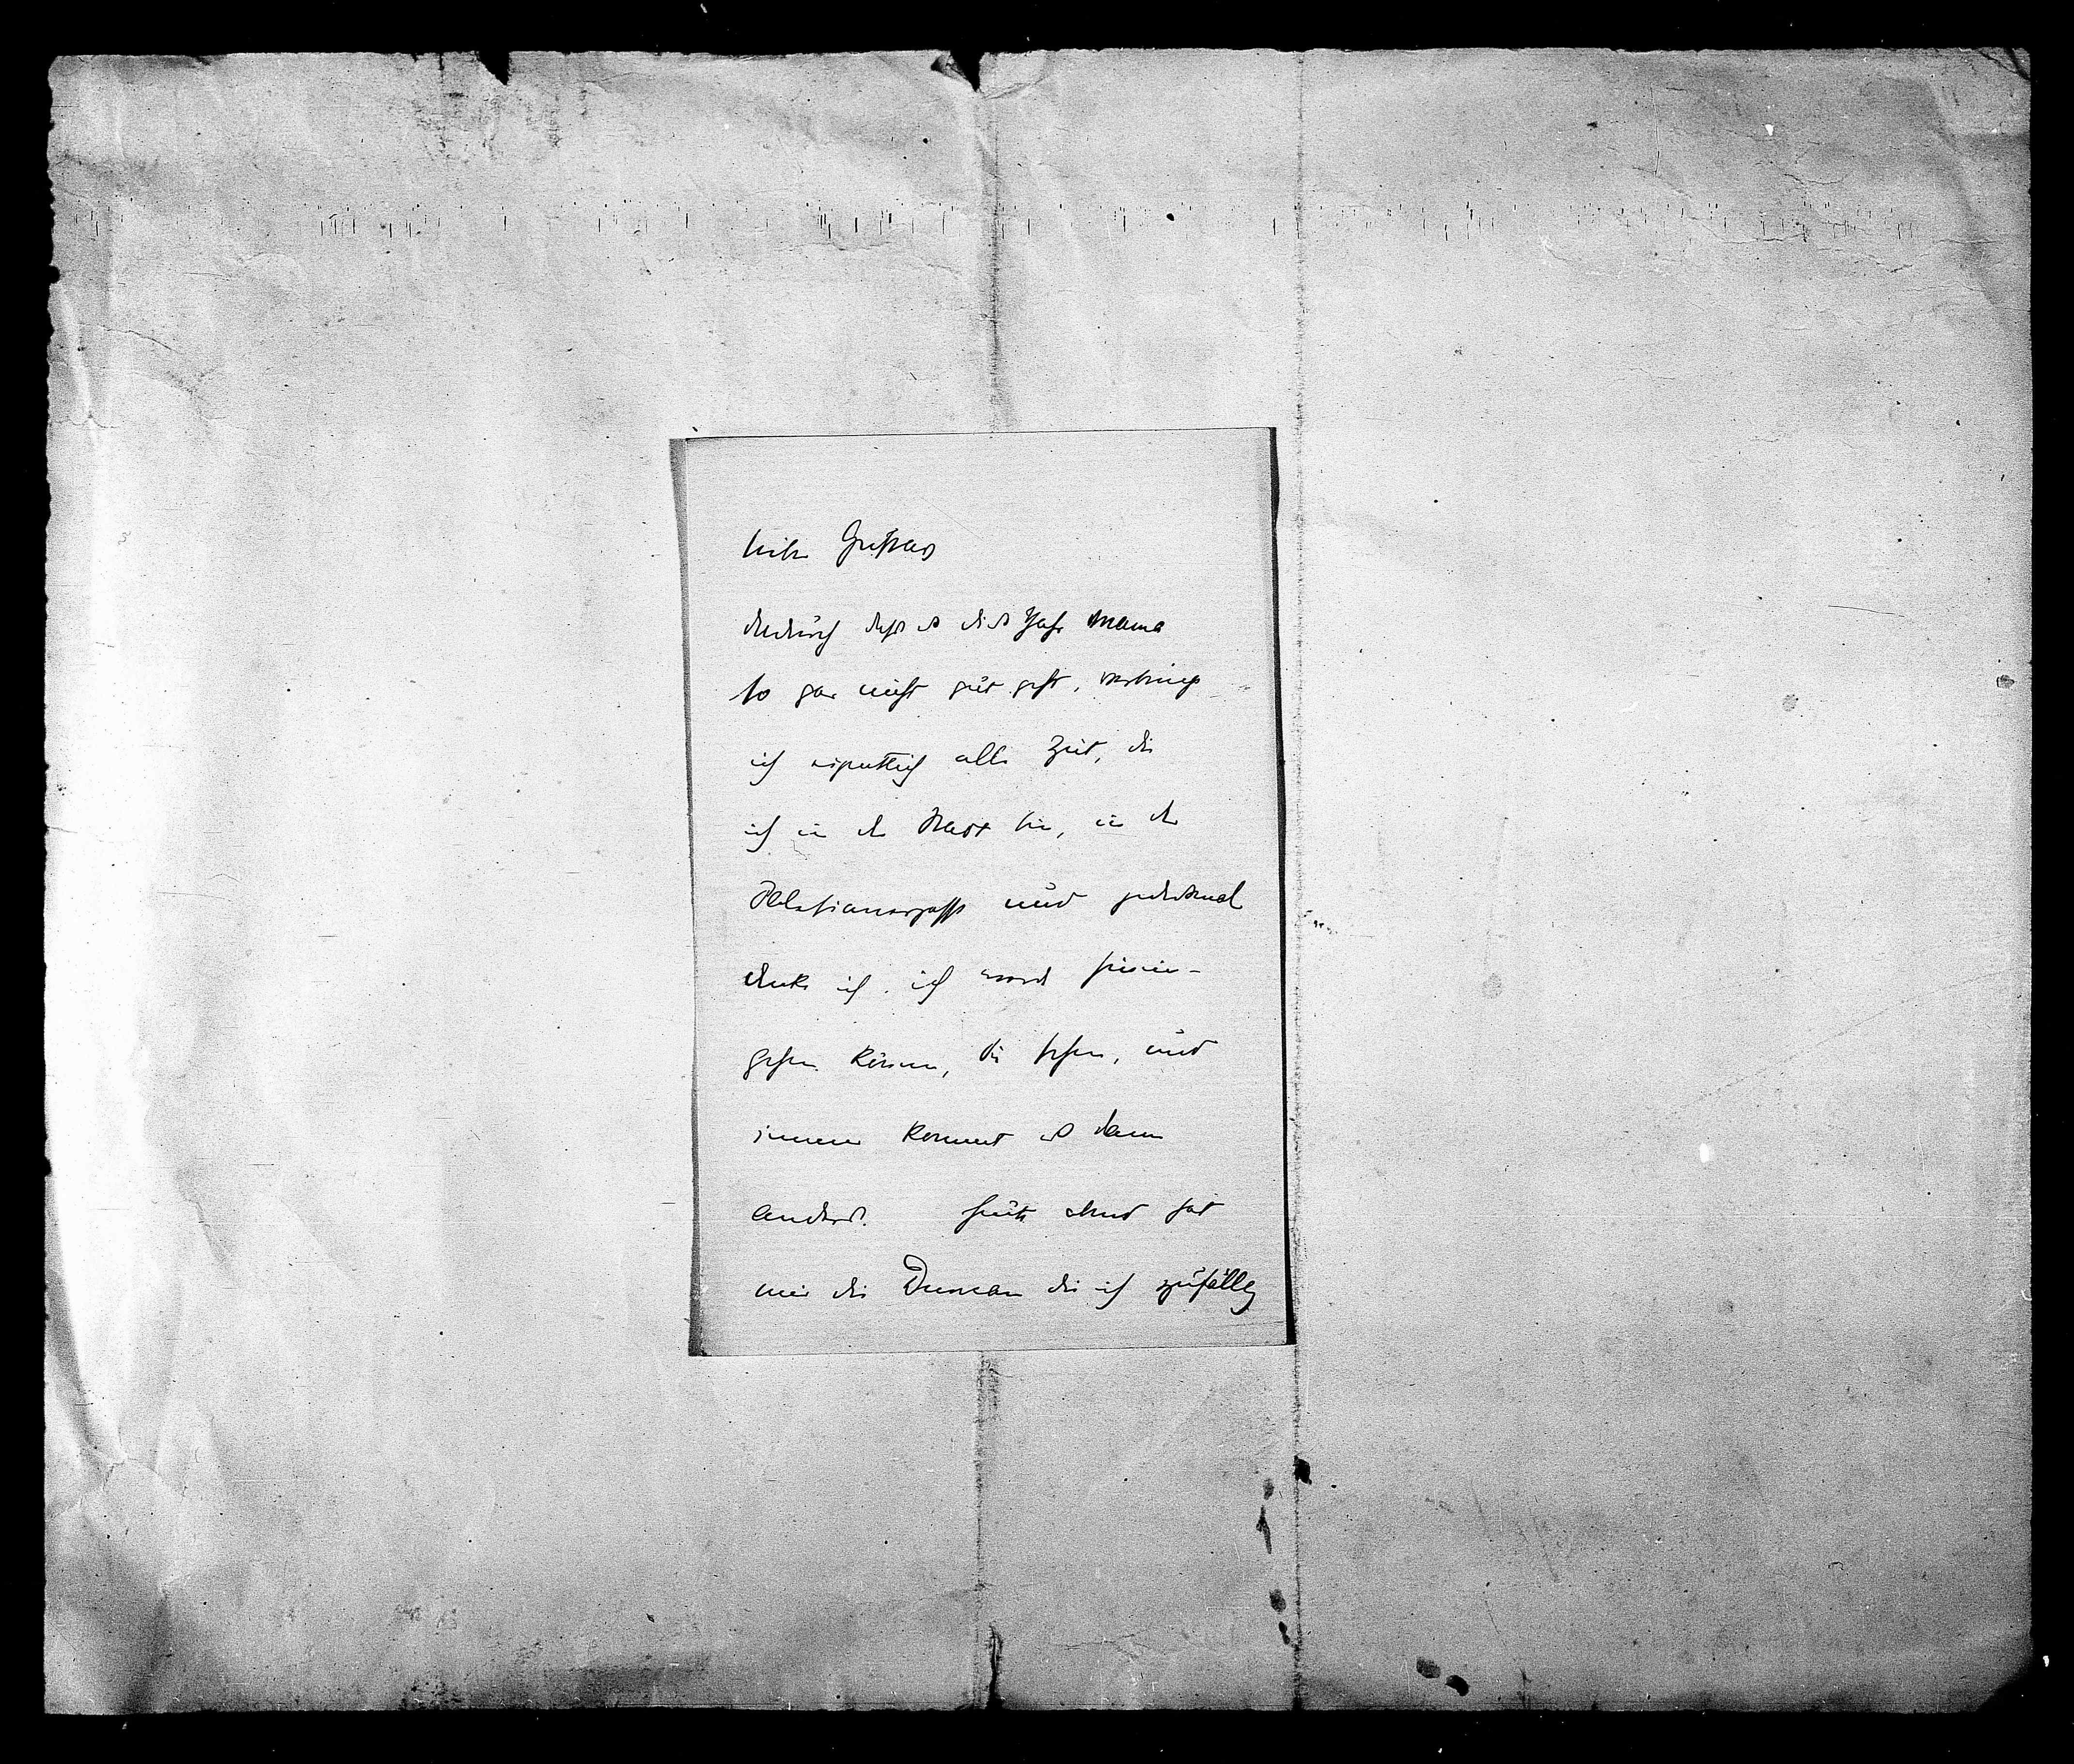 lieber Gustav
dadurch dass es dies Jahr Mama
so gar nicht gut geht, verbringe
ich eigentlich alle Zeit, die
ich in der Stadt bin, in der
Salesianergasse und jedesmal
denke ich, ich werde hinein-
gehen können, Sie sehen, und
immer kommt es dann
anders. Heute abend hat
mir die Duncan die ich zufällig